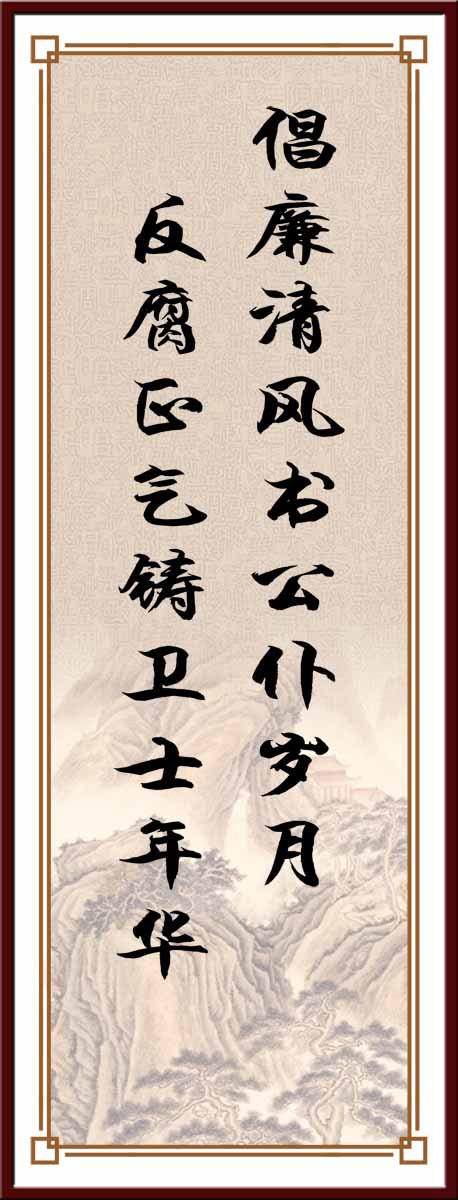 倡廉清风书公仆岁月
反腐正气铸卫士年华